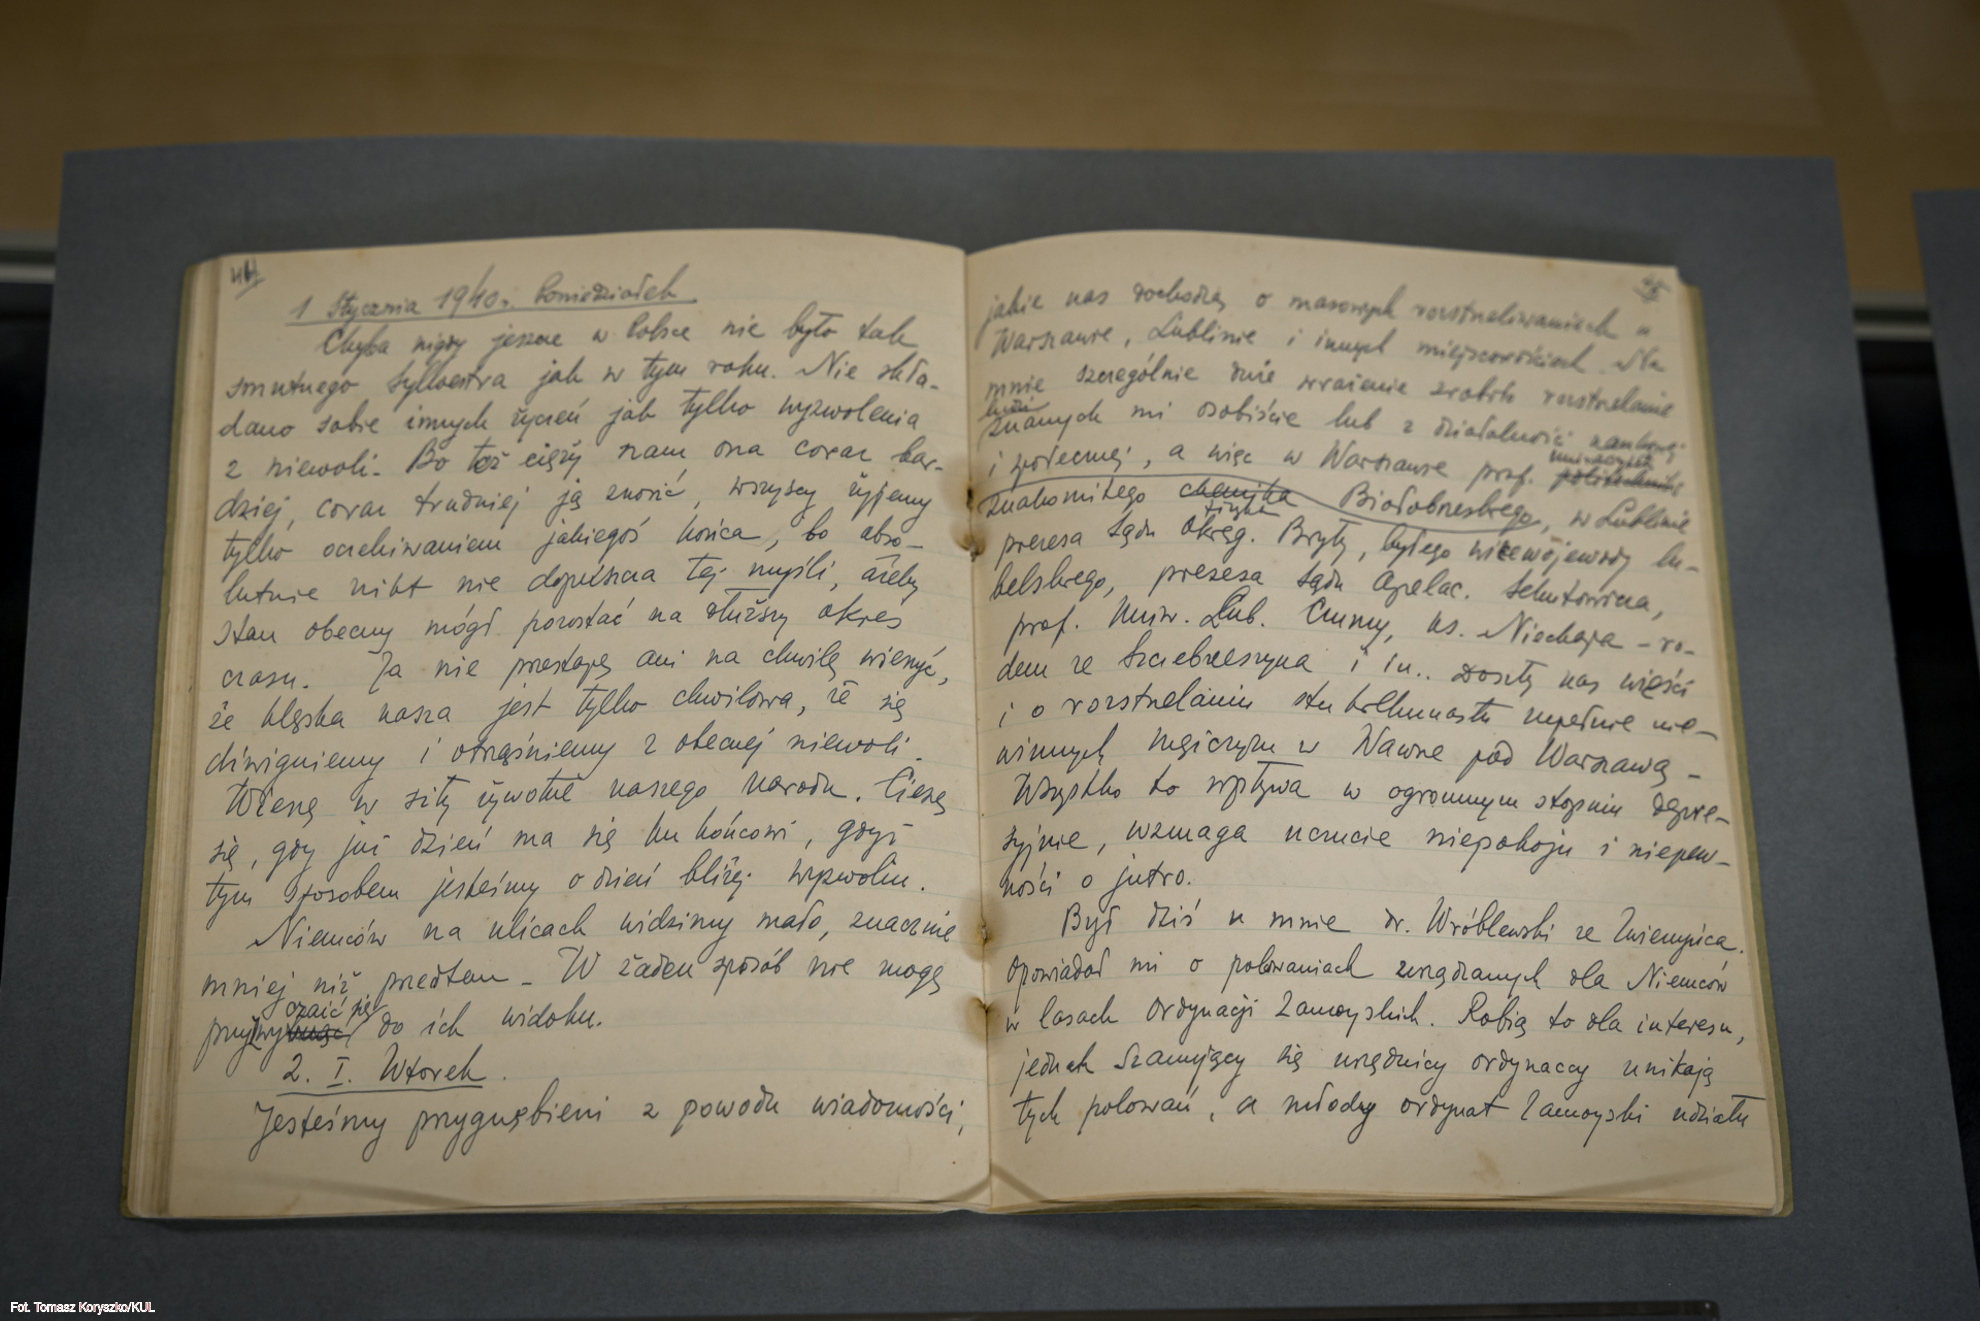 44
1 Stycznia 1940 r. Poniedziałek
Chyba nigdy jeszcze w Polsce nie było tak
smutnego Sylwestra jak w tym roku. Nie skła-
dano sobie innych życzeń jak tylko wyzwolenia
z niewoli. Bo też ciąży nam ona coraz bar-
dziej, coraz trudniej ją znosić, wszyscy żyjemy
tylko oczekiwaniem jakiegoś końca, bo abso-
lutnie nikt nie dopuszcza tej myśli, ażeby
stan obecny mógł pozostać na dłuższy okres
czasu. Ja nie przestaję ani na chwilę wierzyć,
że klęska nasza jest tylko chwilowa, że się
dźwigniemy i otrząśniemy z obecnej niewoli.
Wierzę w siły żywotne naszego narodu. Cieszę
się, gdy już dzień ma się ku końcowi, gdyż
tym sposobem jesteśmy o dzień bliżej wyzwolin.
Niemców na ulicach widzimy mało, znacznie
mniej niż przedtem. W żaden sposób nie mogę
zaić się
przyzwy do ich widoku.
2. I. Wtorek.
Jesteśmy przygnębieni z powodu wiadomości,
45
jakie nas dochodzą o masowych rozstrzeliwaniach w
Warszawie, Lublinie i innych miejscowościach. Na
mnie szczególnie duże wrażenie zrobiło rozstrzelanie
ludzi
znanych mi osobiście lub z działalności naukowej
i społecznej, a więc w Warszawie prof. politechniki
uniwersytetu
znakomitego chemika Białobrzeskiego, w Lublinie
fizyka
prezesa Sądu Okręg. Bryły, byłego wicewojewody lu-
belskiego, prezesa Sądu Apelac. Sekutowicza,
prof. Uniw. Lub. Czumy, ks. Niechaja - ro-
dem ze Szczebrzeszyna i in.. Doszły nas wieści
i o rozstrzelaniu stu kilkunastu zupełnie nie-
winnych mężczyzn w Wawrze pod Warszawą -
Wszystko to wpływa w ogromnym stopniu depre-
syjnie, wzmaga uczucie niepokoju i niepew-
ności o jutro.
Był dziś u mnie dr. Wróblewski ze Zwierzyńca.
Opowiadał mi o polowaniach urządzanych dla Niemców
w lasach Ordynacji Zamoyskich. Robią to dla interesu,
jednak szanujący się urzędnicy ordynaccy unikają
tych polowań, a młody ordynat Zamoyski udziału
Fot. Tomasz Koryszko/KUL